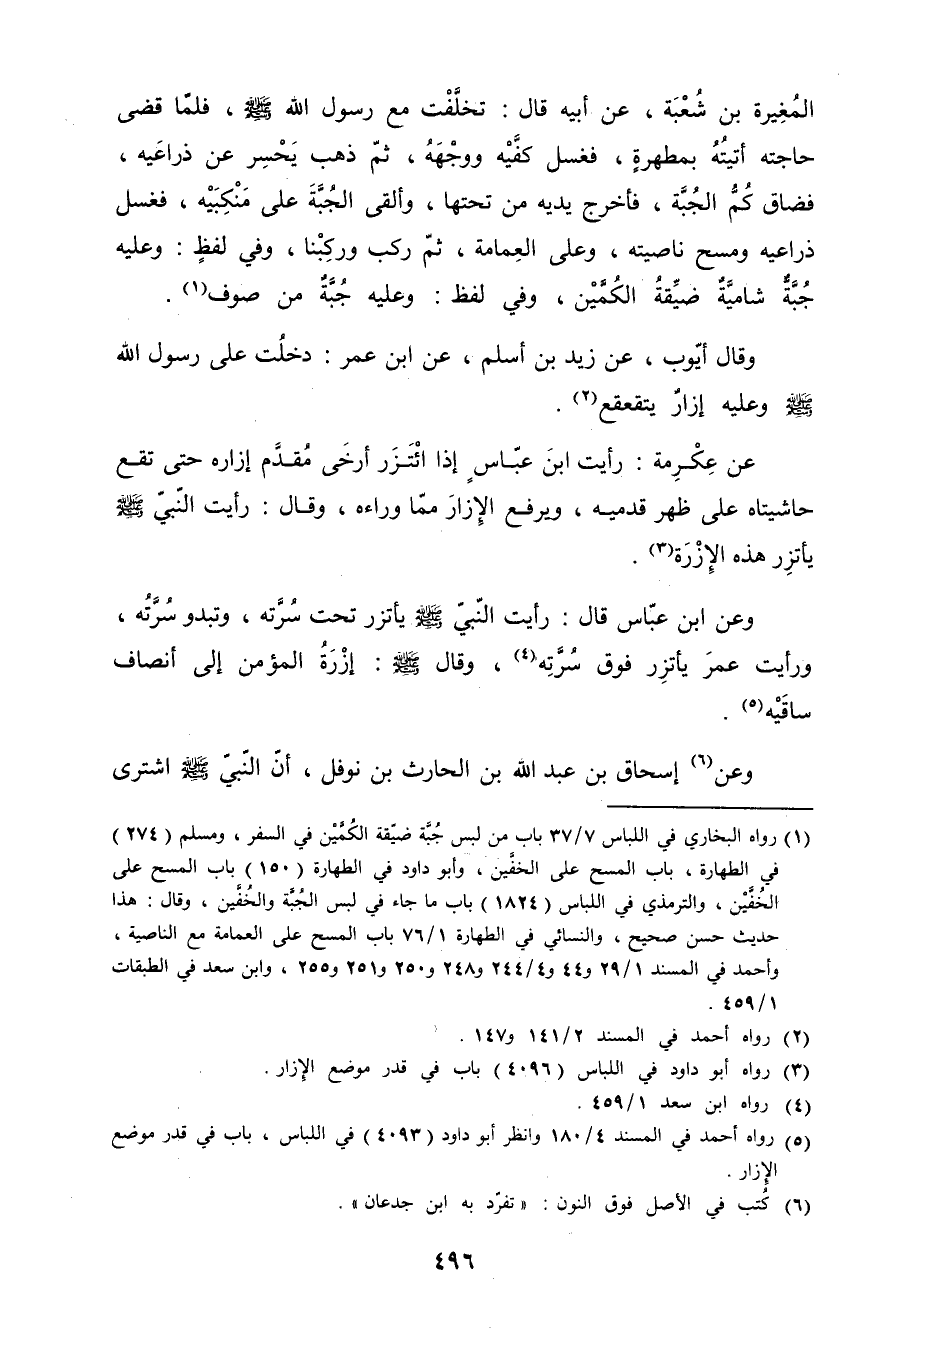 المُغِيرة بن شُعْبَة ، عن أبيه قال : تخلَّفْت مع رسول الله ﷺ ، فلمّا قضى
حاجته أتيتُهُ بمطهرةٍ ، فغسل كفَّيْه ووجْهَهُ ، ثمّ ذهب يَحْسِر عن ذراعَيه ،
فضاق كُمُّ الجُبَّة ، فأخرج يديه من تحتها ، وألقى الجُبَّةَ على مَنْكِبَيْه ، فغسل
ذراعيه ومسح ناصيته ، وعلى العِمامة ، ثمّ ركب وركِبْنا ، وفي لفظٍ : وعليه
جُبَّةٌ شاميَّةٌ ضيِّقةُ الكُمَّيْن ، وفي لفظ : وعليه جُبَّةٌ من صوف(١) .
وقال أيّوب ، عن زيد بن أسلم ، عن ابن عمر : دخلْت على رسول الله
ﷺ وعليه إزارٌ يتقعقع(٢) .
عن عِكْرِمة : رأيت ابنَ عبّاسٍ إذا ائْتَزَر أرخَى مُقدَّم إزاره حتى تقع
حاشيتاه على ظهر قدميه ، ويرفع الإِزارَ ممّا وراءه ، وقال : رأيت النّبيّ ﷺ
يأتزِر هذه الإِزْرَة(٣) .
وعن ابن عبّاس قال : رأيت النّبيّ ﷺ يأتزر تحت سُرَّته ، وتبدو سُرَّتُه ،
ورأيت عمرَ يأتزِر فوق سُرَّتِه(٤) ، وقال ﷺ : إزْرَةُ المؤمن إلى أنصاف
ساقَيْه(٥) .
وعن(٦) إسحاق بن عبد الله بن الحارث بن نوفل ، أنّ النّبيّ ﷺ اشترى
(١) رواه البخاري في اللباس ٣٧/٧ باب من لبس جُبَّة ضيّقة الكُمَّيْن في السفر ، ومسلم ( ٢٧٤ )
في الطهارة ، باب المسح على الخفَّين ، وأبو داود في الطهارة ( ١٥٠ ) باب المسح على
الخُفَّيْن ، والترمذي في اللباس ( ١٨٢٤ ) باب ما جاء في لبس الجُبَّة والخُفَّين ، وقال : هذا
حديث حسن صحيح ، والنسائي في الطهارة ٧٦/١ باب المسح على العمامة مع الناصية ،
وأحمد في المسند ٢٩/١ و٤٤ و٢٤٤/٤ و٢٤٨ و٢٥٠ و٢٥١ و٢٥٥ ، وابن سعد في الطبقات
٤٥٩/١ .
(٢) رواه أحمد في المسند ١٤١/٢ و١٤٧ .
(٣) رواه أبو داود في اللباس ( ٤٠٩٦ ) باب في قدر موضع الإِزار .
(٤) رواه ابن سعد ٤٥٩/١ .
(٥) رواه أحمد في المسند ١٨٠/٤ وانظر أبو داود ( ٤٠٩٣ ) في اللباس ، باب في قدر موضع
الإِزار .
(٦) كُتب في الأصل فوق النون : « تفرّد به ابن جدعان » .
٤٩٦